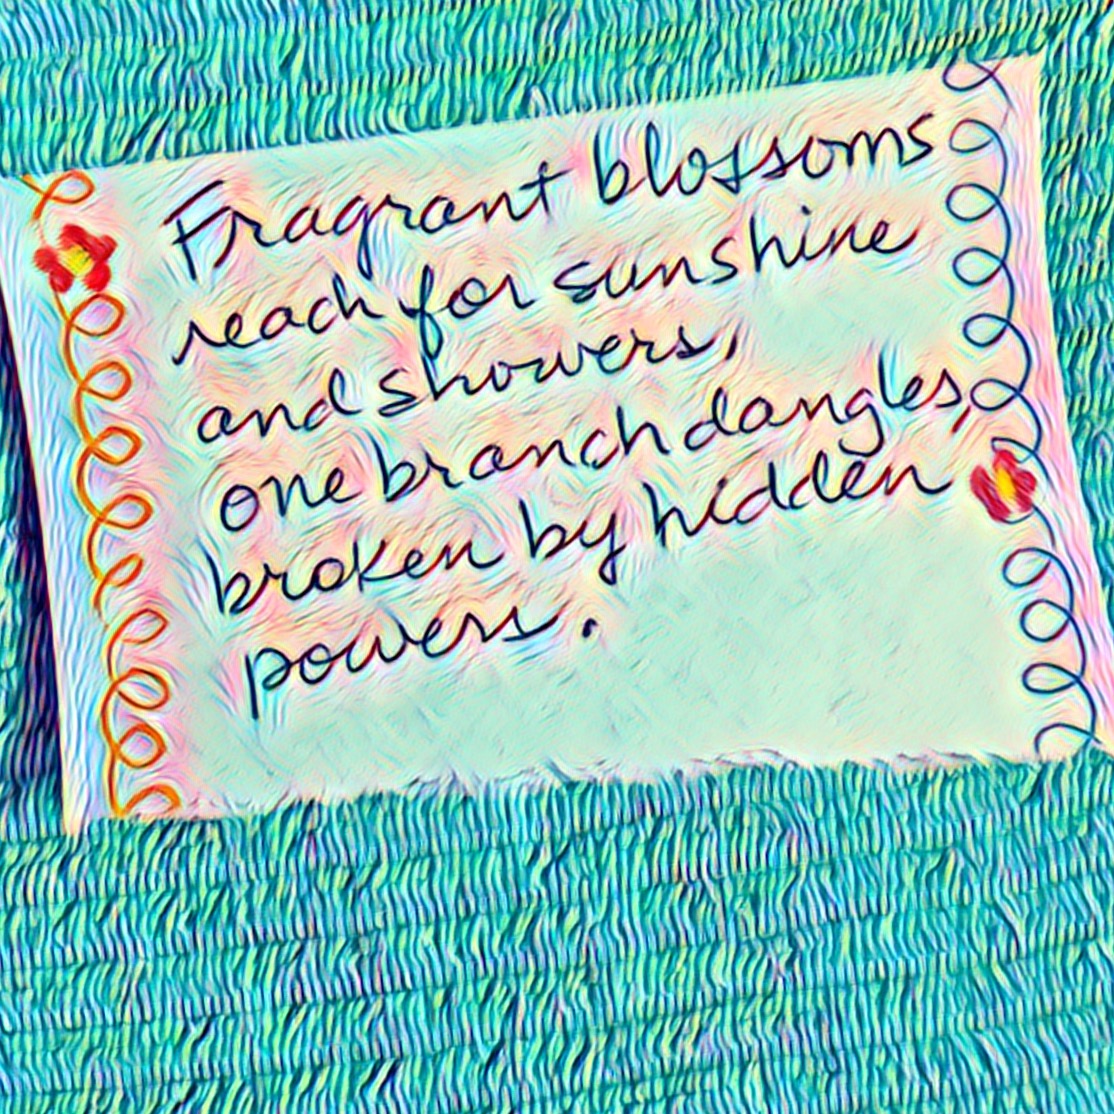 Fragrant blossoms
reach for sunshine
and showers,
one branch dangles,
broken by hidden
powers.